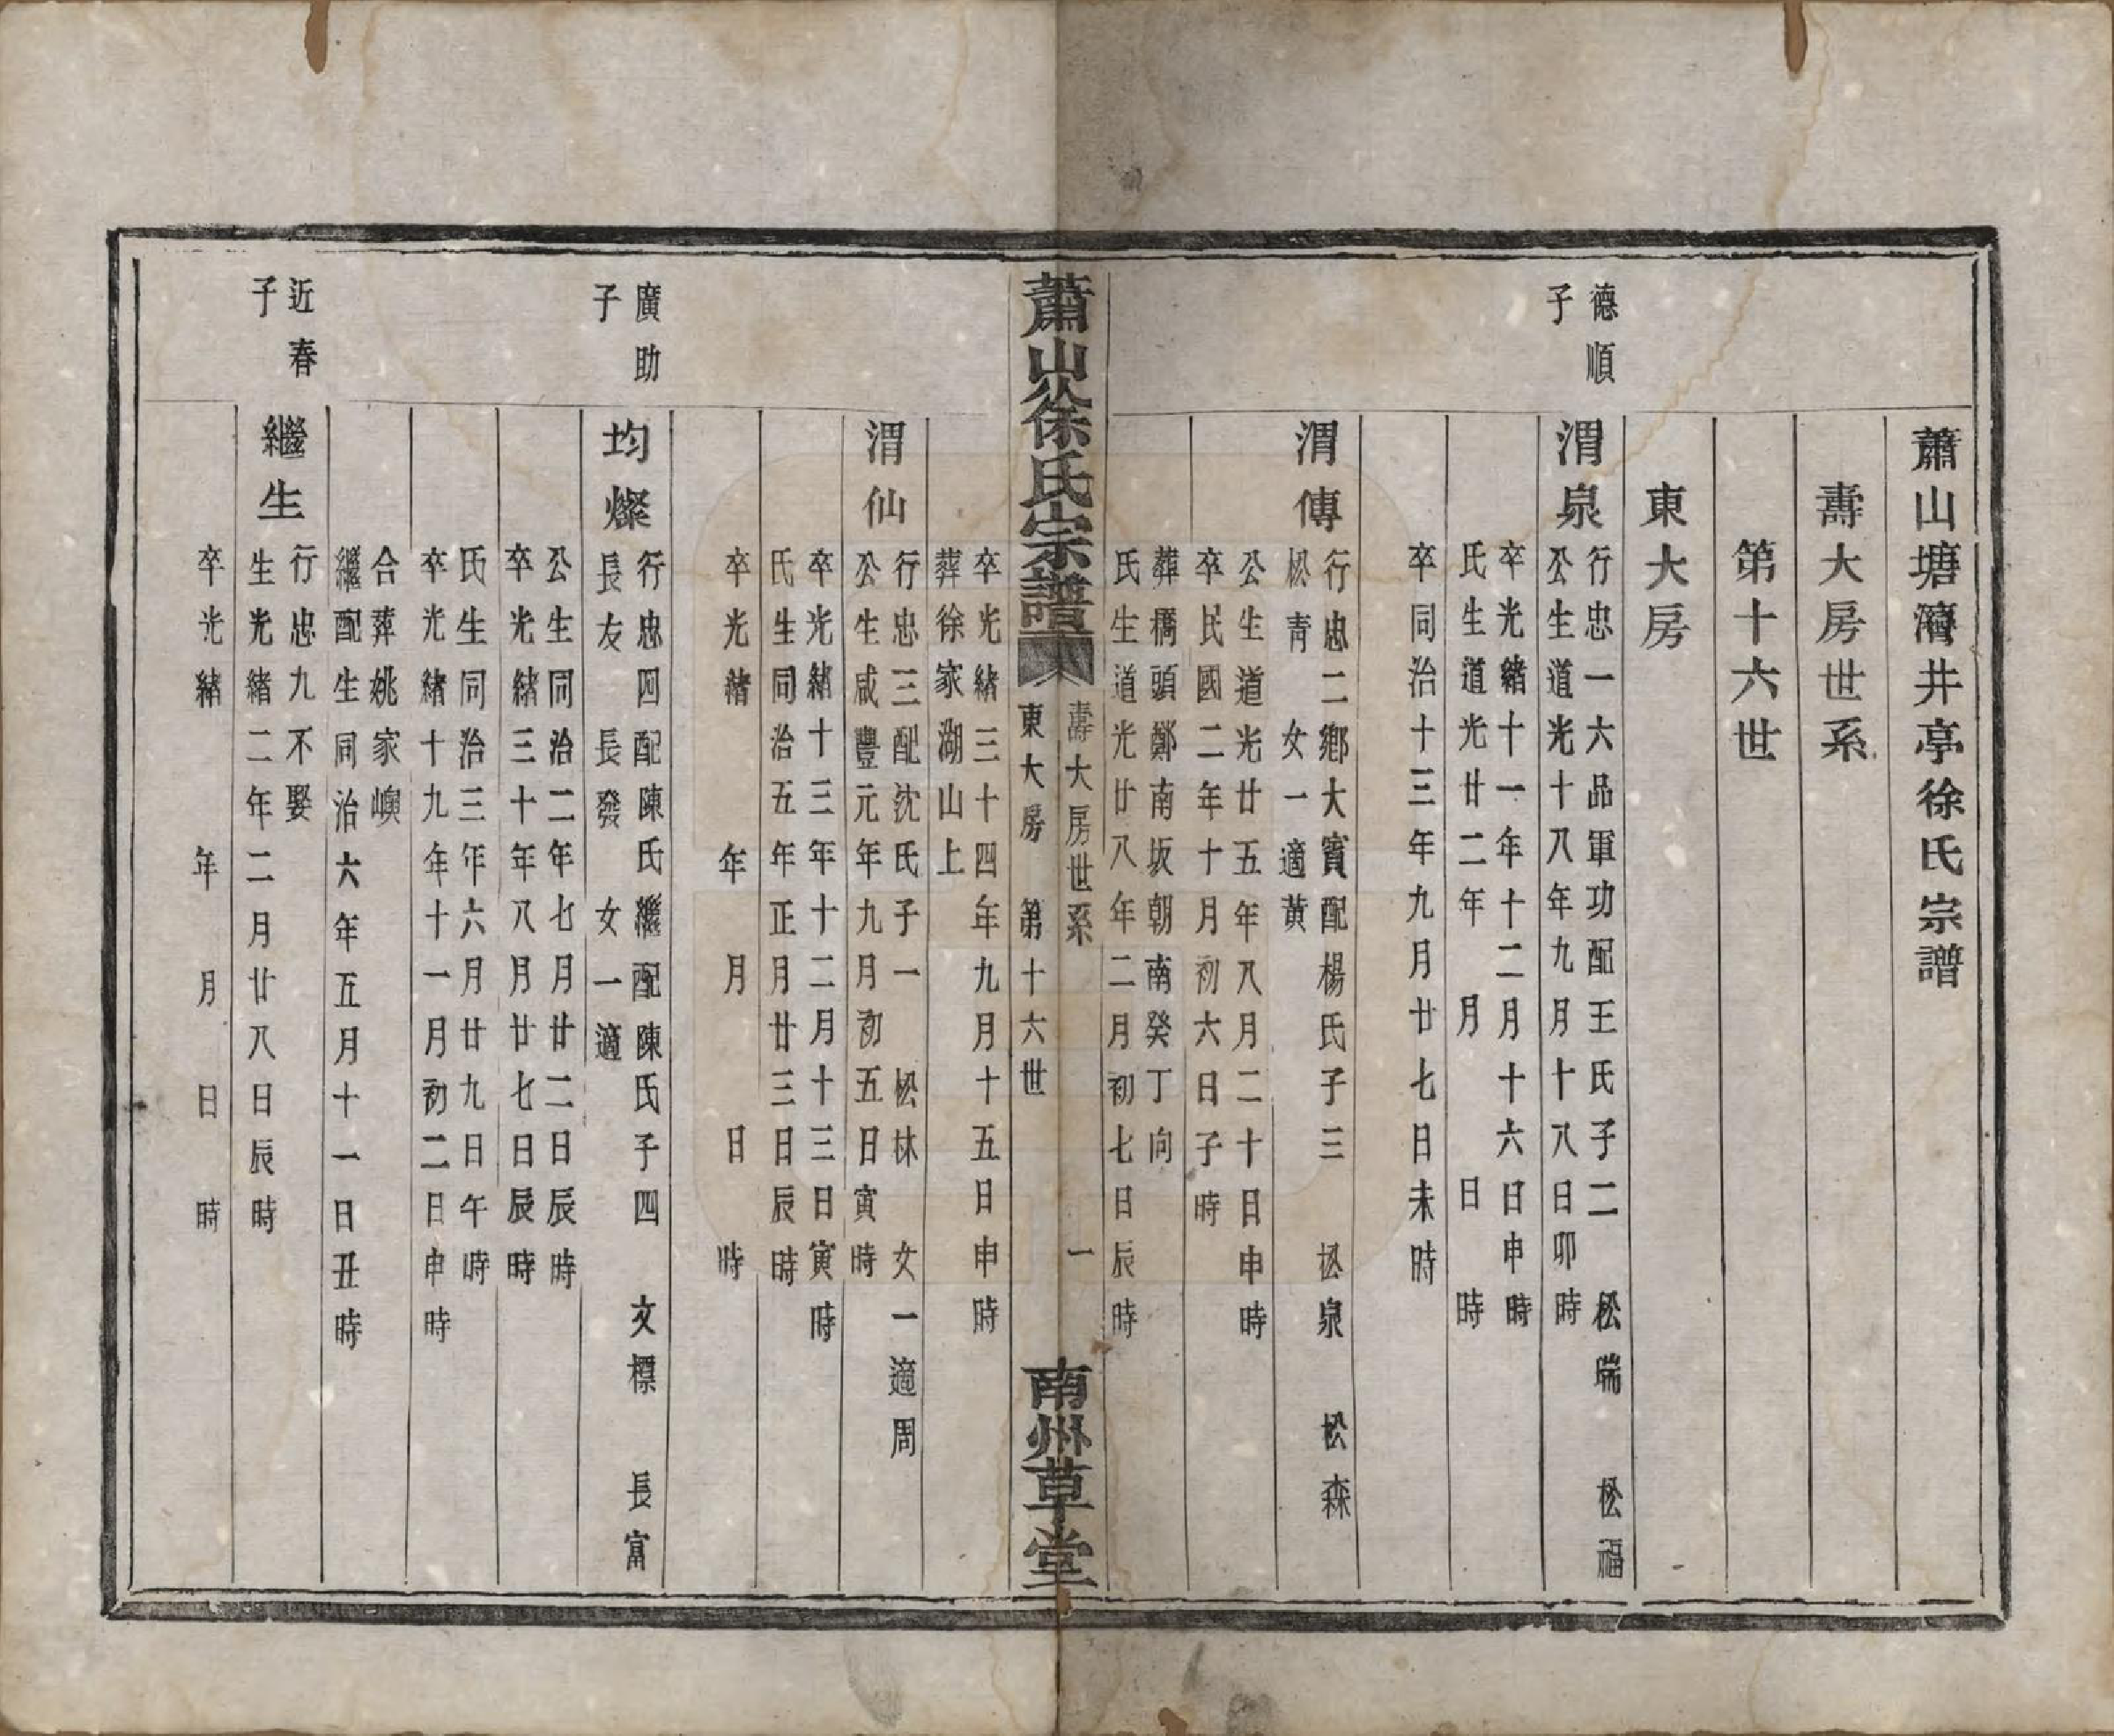 蕭山塘灣井亭徐氏宗譜
壽大房世系
第十六世
東大房
德順
子
渭泉
行忠一六品軍功配王氏子二 松瑞 松福
公生道光十八年九月十八日卯時
卒光緒十一年十二月十六日申時
氏生道光廿二年 月 日 時
卒同治十三年九月廿七日未時
渭傳
行忠二鄉大賓配楊氏子三 松泉 松森
松青 女一適黃
公生道光廿五年八月二十日申時
卒民國二年十月初六日子時
葬橋頭鄭南坂朝南癸丁向
氏生道光廿八年二月初七日辰時
蕭山徐氏宗譜
壽大房世系 一
東大房 第十六世
南州草堂
卒光緒三十四年九月十五日申時
葬徐家湖山上
渭仙
行忠三配沈氏子一 松林 女一適周
公生咸豐元年九月初五日寅時
卒光緒十三年十二月十三日寅時
氏生同治五年正月廿三日辰時
卒光緒 年 月 日 時
廣助
子
均燦
行忠四配陳氏繼配陳氏子四 文標 長富
長友 長發 女一適
公生同治二年七月廿二日辰時
卒光緒三十年八月廿七日辰時
氏生同治三年六月廿九日午時
卒光緒十九年十一月初二日申時
合葬姚家嶴
繼配生同治六年五月十一日丑時
近春
子
繼生
行忠九不娶
生光緒二年二月廿八日辰時
卒光緒 年 月 日 時